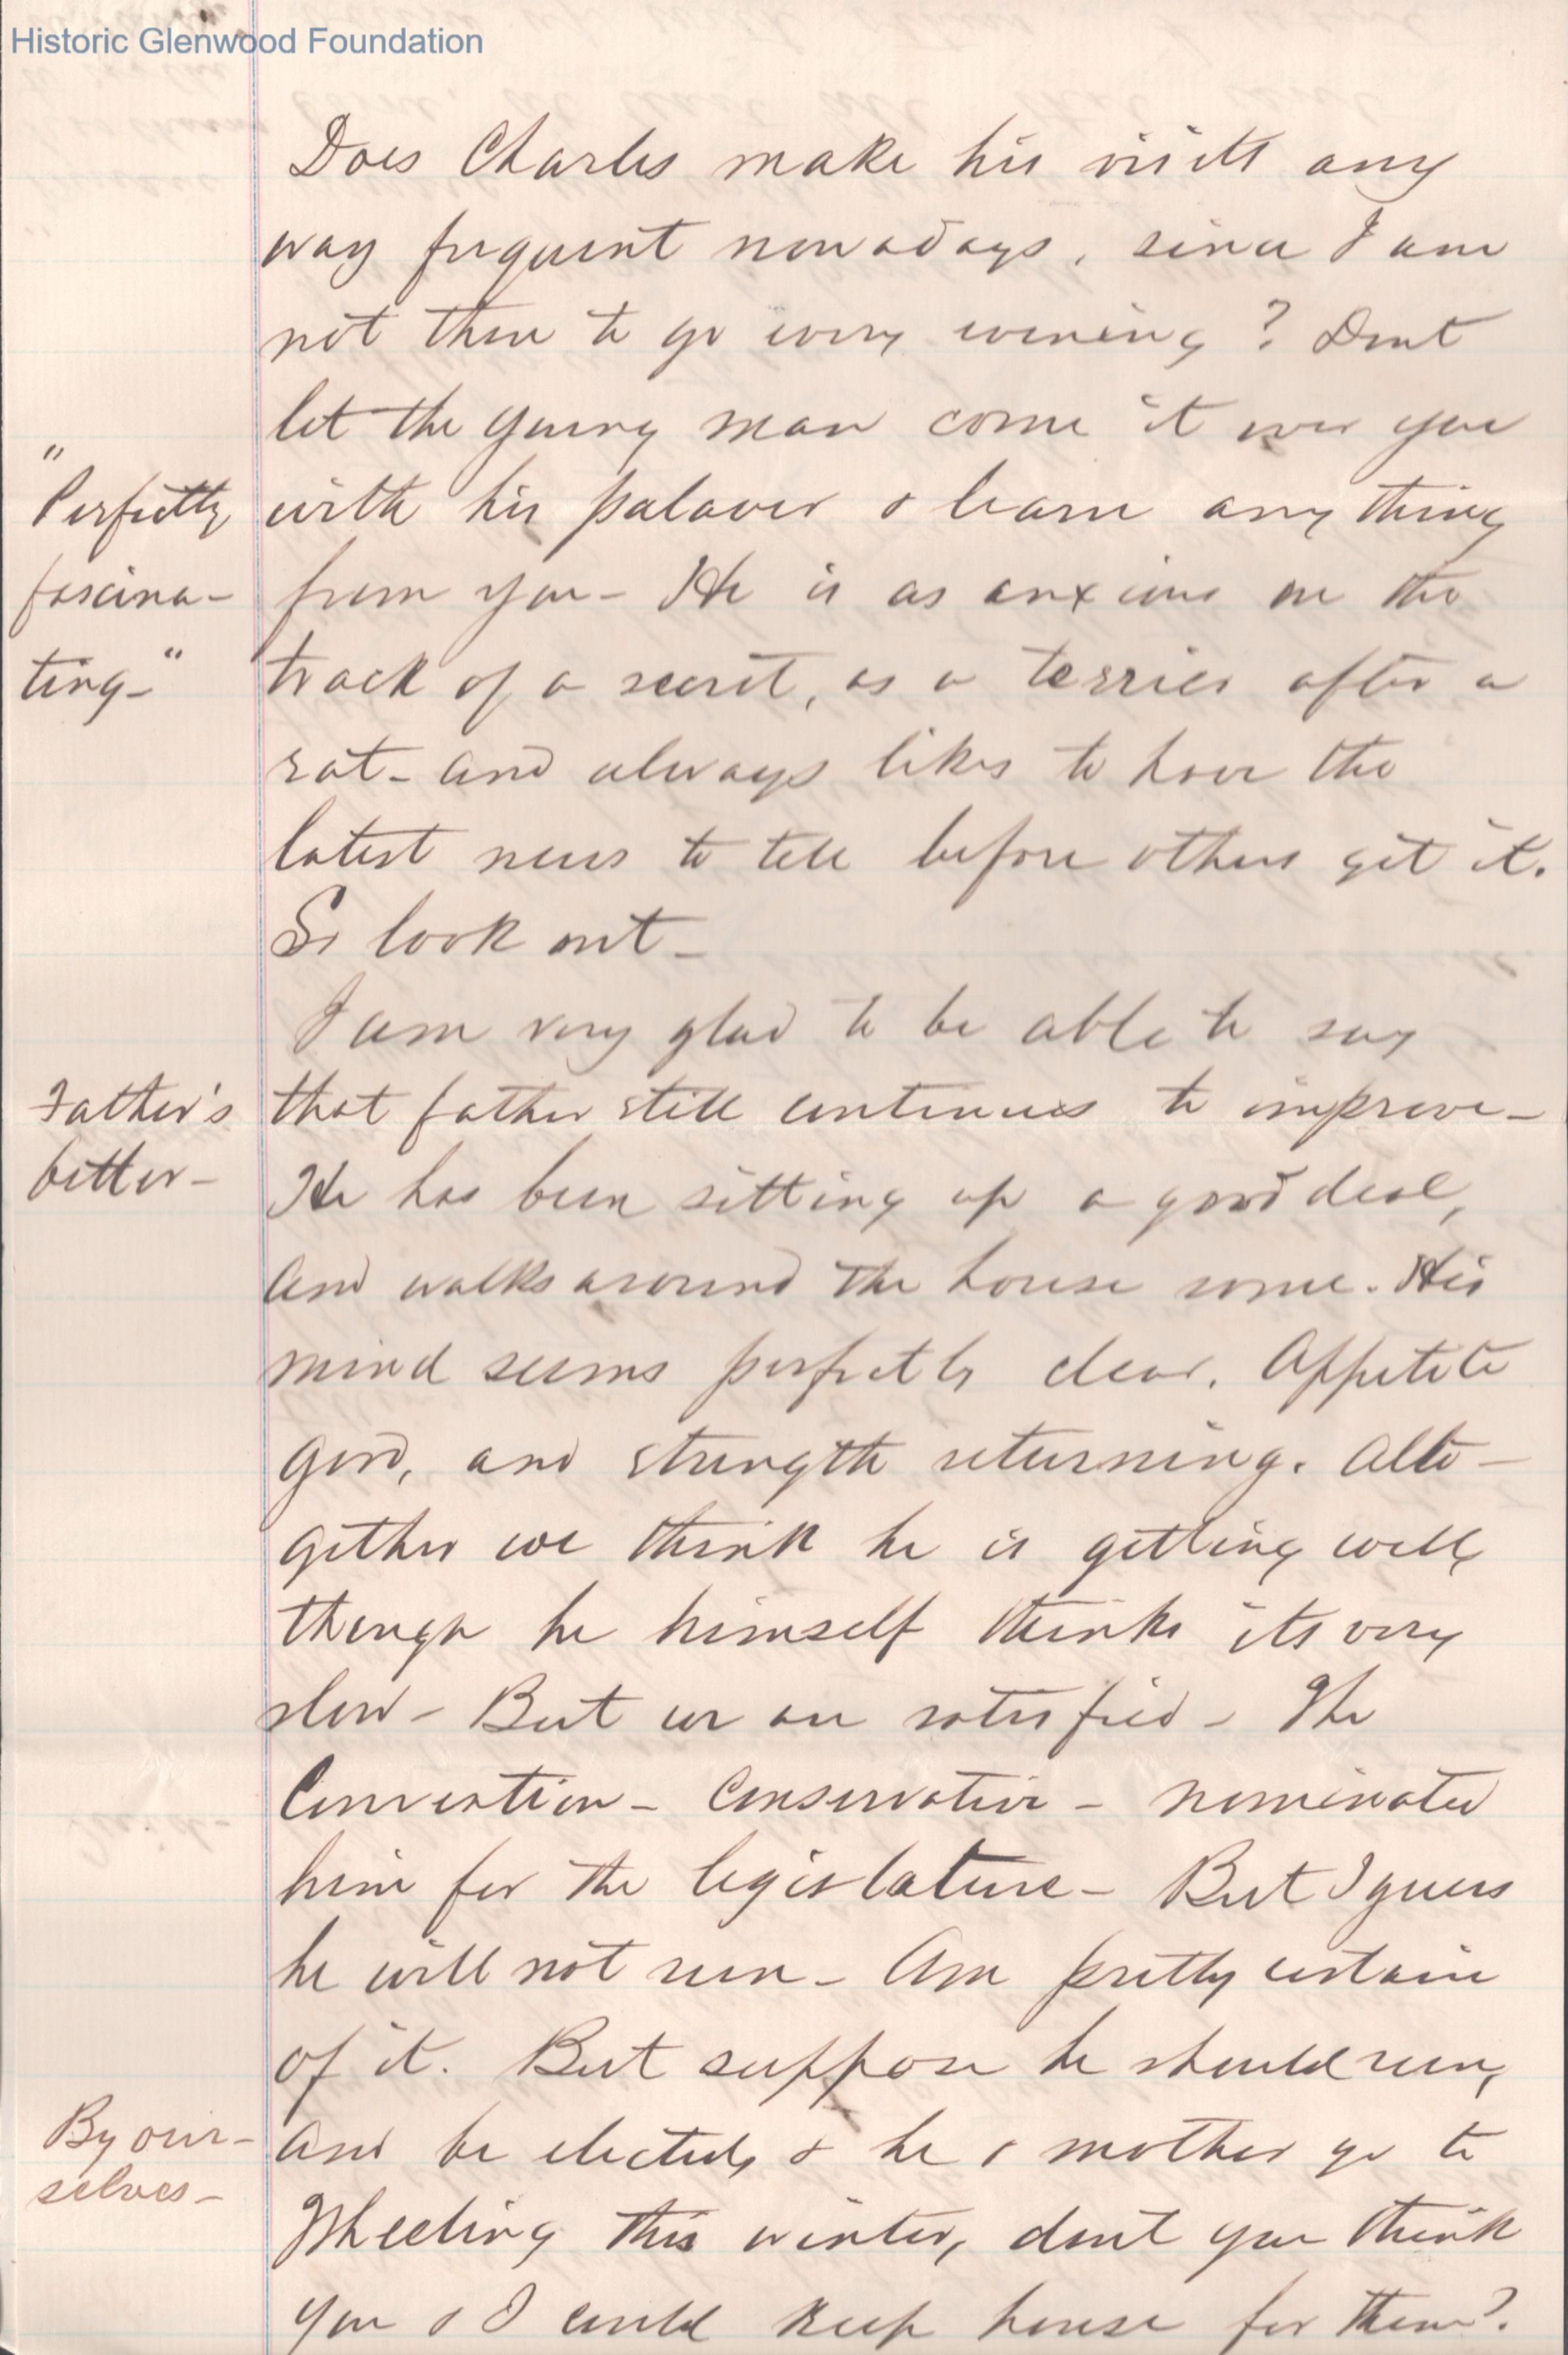 Historic Glenwood Foundation
Does Charles make his visits any
way frequent nowadays, since I am
not there to go every evening? Dont
let the young man come it over you
"Perfectly
with his palaver & learn any thing
fascina-
from you - He is as anxious on the
ting-"
track of a secret, as a terrier after a
rat - and always likes to have the
latest news to tell before others get it.
So look out -
I am very glad to be able to say
Father's
that father still continues to improve -
better -
He has been sitting up a good deal,
and walks around the house some. His
mind seems perfectly clear. Appetite
good, and strength returning. Alto -
gether we think he is getting well,
though he himself thinks its very
slow - But we are satisfied - The
Convention - Conservative - nominated
him for the legislature - But I guess
he will not run - Am pretty certain
of it. But suppose he should run,
By our-
and be elected, & he & mother go to
selves -
Wheeling this winter, dont you think
you & I could keep house for them?